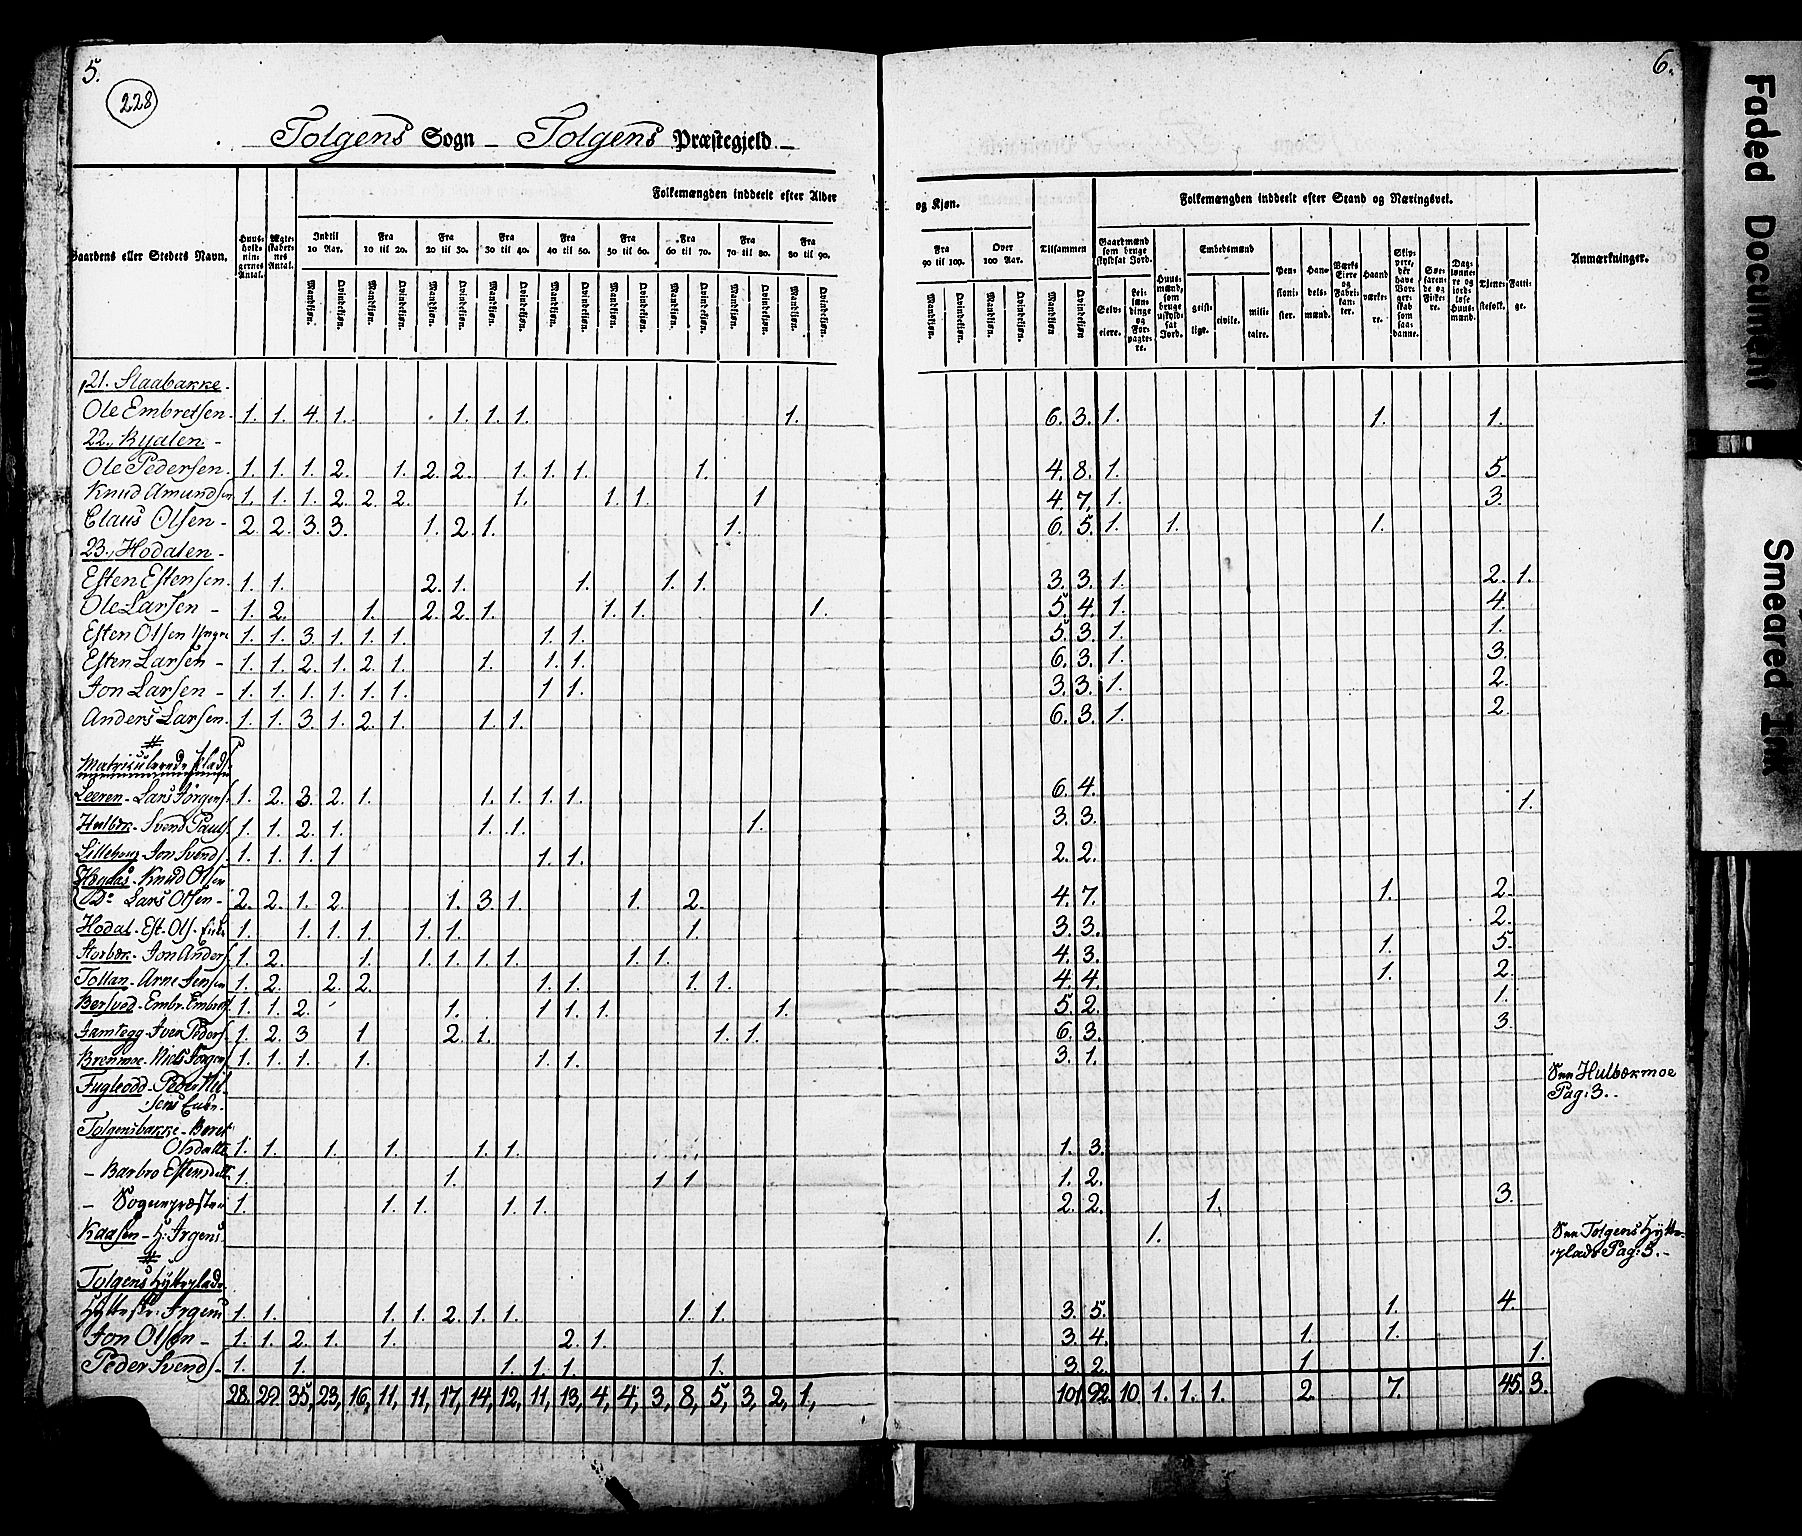 5.
228
Tolgens Sogn – Tolgens Præstegjeld. –
6.
Gaardens eller Steders Navn.
Huus-holdningernes Antal.
Ægteskabernes Antal.
Folkemængden inddeelt efter Alder og Kjøn.
Indtil 10 Aar. Fra 10 til 20. Fra 20 til 30. Fra 30 til 40. Fra 40 til 50. Fra 50 til 60. Fra 60 til 70. Fra 70 til 80. Fra 80 til 90. Fra 90 til 100. Over 100 Aar. Tilsammen
Mandkiøn. Qvindekiøn.
Folkemængden inddeelt efter Stand og Næringsvei.
Gaardmænd som bruge skyldsat Jord.
Selveiere. Leilændinge og Forpagtere.
Huusmænd, som bruge uskyldsat Jord.
Embedsmænd
geistlige. civile. militaire.
Pensionister. Handelsmænd. Værks Eiere og Fabrikanter. Haandværkere. Skippere, der have Borgerskab som saadanne. Søefarende og Fiskere. Dagslønnere og jordløse Huusmænd. Tjenestefolk. Fattige.
Anmærkninger.
21. Slaabakke.
Ole Embretsen. 1. 1. 4. 1. 1. 1. 1. 1. 6. 3. 1. 1. 1.
22., Rydlen. –
Ole Pedersen. 1. 1. 1. 2. 1. 2. 2. 1. 1. 1. 1. 4. 8. 1. 5.
Knud Amundsen 1. 1. 1. 2. 2. 2. 1. 1. 1. 1 4. 7. 1. 3.
Claus Olsen – 2. 2. 3. 3. 1. 2. 1. 1. 6. 5. 1. 1. 1.
23., Hodalen –
Esten Estensen. 1. 1. 2. 1. 1. 1. 1. 3. 3. 1. 2. 1.
Ole Larsen – 1. 2. 1. 2. 2. 1. 1. 1. 1. 5. 4. 1. 4.
Esten Olsen Yngre 1. 1. 3. 1. 1. 1. 1. 1. 5. 3. 1. 1.
Esten Larsen – 1. 1. 2. 1. 2. 1. 1. 1. 1. 6. 3. 1. 3.
Jon Larsen – 1. 1. 1. 1. 1. 1. 1 1. 3. 3. 1. 2.
Anders Larsen. 1. 1. 3. 1. 2. 1. 1. 1. 6. 3. 1. 2.
Matriculerede Pladse
Leeren – Lars Jörgens. 1. 2. 3. 2. 1. 1. 1. 1. 1. 6. 4. 1.
Hulbæk – Svend Pauls. 1. 1. 2. 1. 1. 1. 1. 3. 3.
Lilleberg Jon Svends. 1. 1. 1. 1 1. 1. 2. 2.
Hegdås – Knud Olsen
Do Lars Olsen – 2. 2. 1. 2. 1. 3. 1. 1. 2. 4. 7. 1. 2.
Hodal – Est. Ols. Enke 1. 1. 1. 1. 1. 1. 1. 3. 3. 2.
Storbæk – Jon Anders. 1. 2. 1. 1. 1. 1. 1. 1. 1. 4. 3. 1. 5.
Tollan – Arne Jensen 1. 2. 2. 2. 1. 1. 1. 1. 4. 4. 1. 2.
Bersved – Embr. Embrets. 1. 1. 2. 1. 1. 1. 1. 1. 5. 2. 1.
Jamtegg – Iver Peders. 1. 2. 3 1. 2. 1. 1. 1. 6. 3. 3.
Brenmoe – Niels Jörgens. 1. 1. 1. 1. 1. 1. 3. 1.
Fugleodd – Peder Nilsens Enke.
See Hulbækmoe
Pag: 3. –
Tolgensbakke – Beret
Olsdatter 1. 1. 1. 1. 1. 1. 1. 3.
– Barbro Estensdatt. 1. 1. 1. 1. 1. 2.
– Sognepræsten 1. 1. 1. 1. 1. 2. 2. 1. 3.
Kaasen – H: Irgens. 1. See Tolgens Hytte-
plads Pag: 5. –
Tolgens Hytteplads.
Hytteskr: Irgens 1. 1. 1. 1. 2. 1. 1. 1. 1. 3. 5. 1. 4.
Jon Olsen – 1. 1. 2. 1. 1. 2. 1. 3. 4. 1. 1.
Peder Svends. – 1. 1. 1. 1. 1. 1. 3. 2. 1. 1.
28. 29. 35, 23, 16, 11, 11, 17, 14, 12, 11, 13, 4, 4, 3, 8, 5, 3, 2, 1, 101. 92. 10. 1. 1. 1. 2. 7. 45. 3.
Faded Document
Smeared Ink